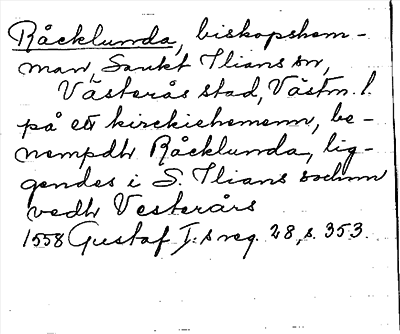 Råcklunda, biskopshem-
man, Sankt Ilians sn,
Västerås stad, Västm. l.
på ett kirckiehemenn, be-
nempdh Råcklunda, lig-
gendes i S. Ilians sochnn
vedh Vesterårs
1558 Gustaf I:s reg. 28, s. 353.